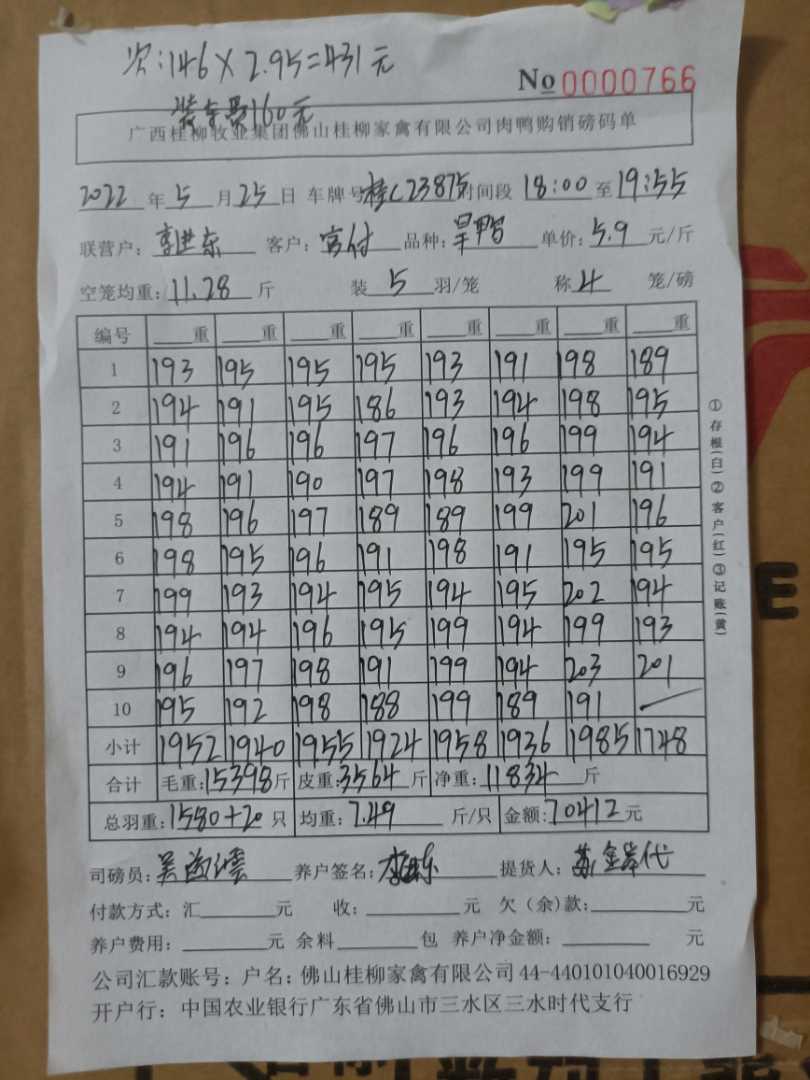 次:146×2.95=431元
No 0000766
装车费160元
广西桂柳牧业集团佛山桂柳家禽有限公司肉鸭购销磅码单
2022年5月25日 车牌号桂C23875时间段18:00至19:55
联营户:李世东 客户:富付 品种:旱鸭 单价:5.9元/斤
空笼均重:11.28斤 装5羽/笼 称4笼/磅
编号 重 重 重 重 重 重 重 重
1 193 195 195 195 193 191 198 189
2 194 191 195 186 193 194 198 195
3 191 196 196 197 196 196 199 194
4 194 191 190 197 198 193 199 191
5 198 196 197 189 189 199 201 196
6 198 195 196 191 198 191 195 195
7 199 193 194 195 194 195 202 194
8 194 194 196 195 199 194 199 193
9 196 197 198 191 199 194 203 201
10 195 192 198 188 199 189 191 —
小计 1952 1940 1955 1924 1958 1936 1985 1748
合计 毛重:15398斤 皮重:3564斤 净重:11834斤
总羽重:1580+20只 均重:7.49斤/只 金额:70412元
司磅员:吴 养户签名: 提货人:苏金华代
付款方式:汇 元 收: 元 欠(余)款: 元
养户费用: 元 余料 包 养户净金额: 元
公司汇款账号:户名:佛山桂柳家禽有限公司44-440101040016929
开户行:中国农业银行广东省佛山市三水区三水时代支行
①存根(白)②客户(红)③记账(黄)
E